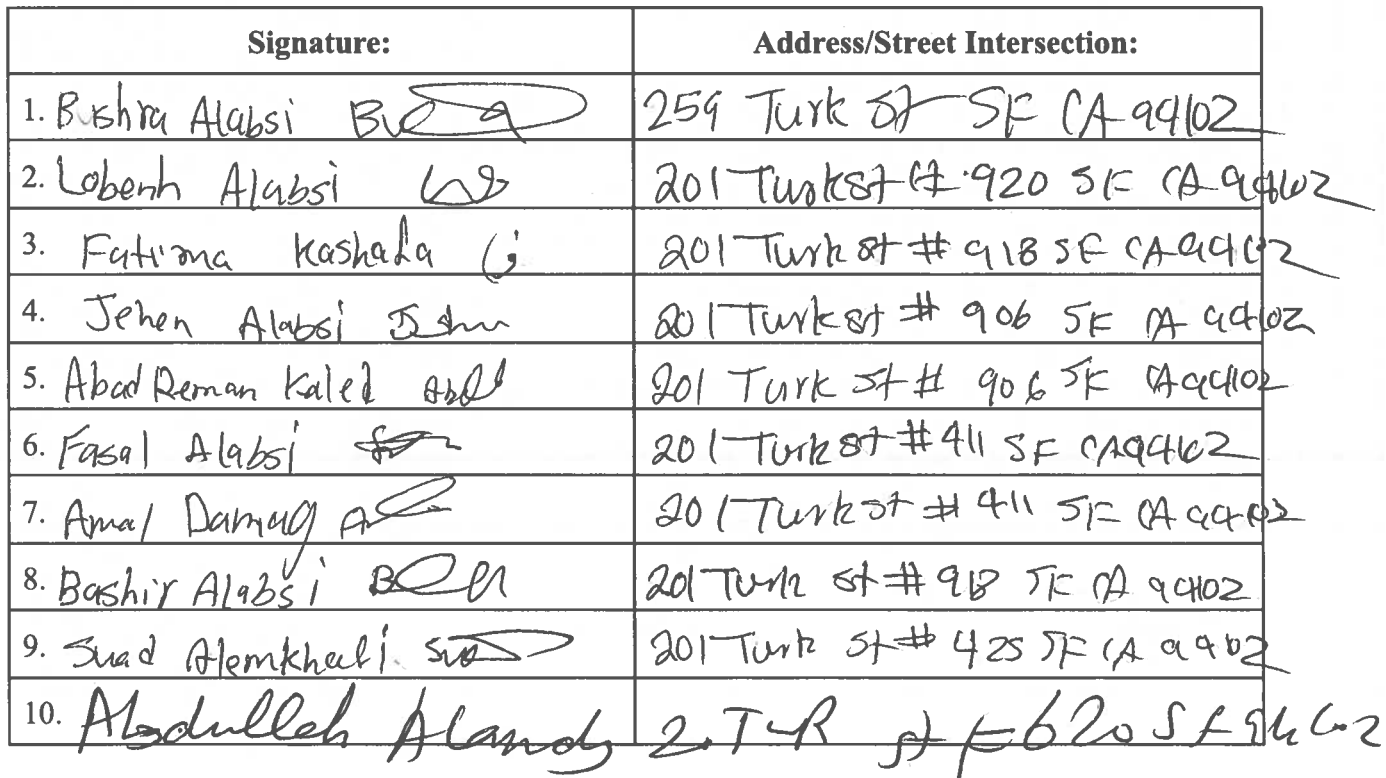 Signature: Address/Street Intersection:
1. Bushra Alabsi 259 Turk St SF CA 94102
2. Lobenh Alabsi 201 Turk St #920 SF CA 94102
3. Fatima Kashada 201 Turk st # 918 SF CA 94102
4. Jehen Alabsi 201 Turk st # 906 SF CA 94102
5. Abad Reman Kaled 201 Turk St # 906 SF CA 94102
6. Fasal Alabsi 201 Turk st #411 SF CA 94102
7. Amal Damag 201 Turk st # 411 SF CA 94102
8. Bashir Alabsi 201 Turk st # 918 SF CA 94102
9. Suad 201 Turk St # 425 SF CA
10. Abdullah 620 SF